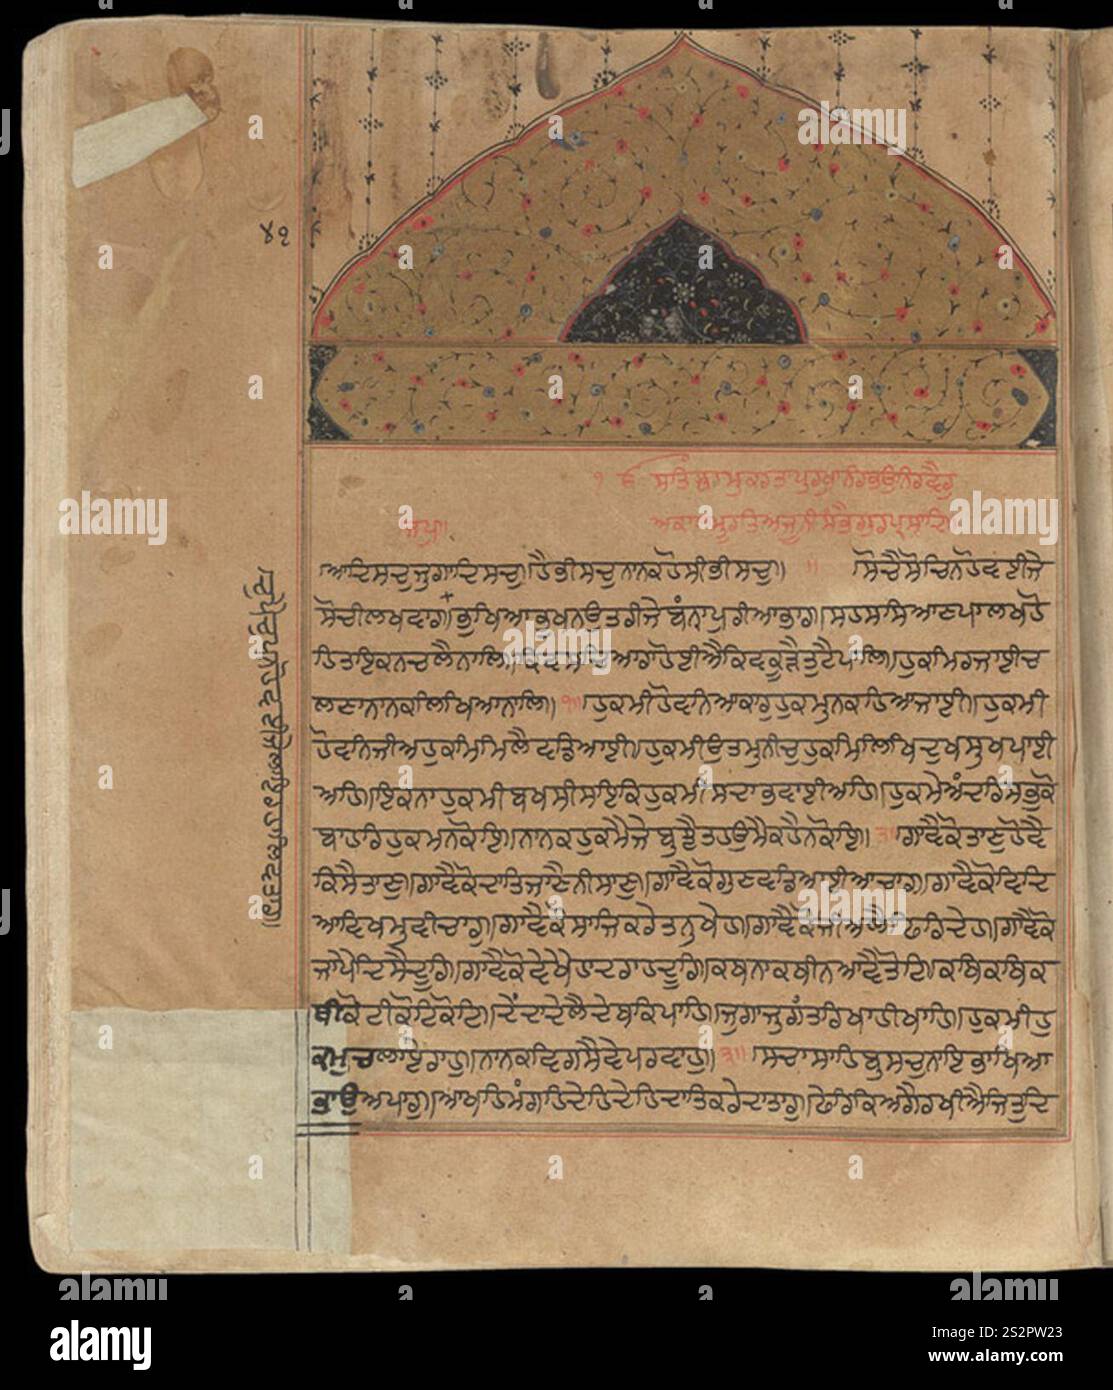 ੪੧
ੴ ਸਤਿਨਾਮੁਕਰਤਾਪੁਰਖੁਨਿਰਭਉਨਿਰਵੈਰੁ
ਅਕਾਲਮੂਰਤਿਅਜੂਨੀਸੰਭੈਗੁਰਪ੍ਰਸਾਦਿ
ਜਪੁ॥
ਆਦਿਸਚੁਜੁਗਾਦਿਸਚੁ॥ਹੈਭੀਸਚੁਨਾਨਕਹੋਸੀਭੀਸਚੁ॥ ॥ ਸੋਚੈਸੋਚਿਨਹੋਵਈਜੇ
ਸੋਚੀਲਖਵਾਰ॥ਭੁਖਿਆਭੁਖਨਉਤਰੀਜੇਬੰਨਾਪੁਰੀਆਭਾਰ॥ਸਹਸਸਿਆਣਪਾਲਖਹੋ
ਹਿਤਾਇਕਨਚਲੈਨਾਲਿ॥ਕਿਵਸਚਿਆਰਾਹੋਈਐਕਿਵਕੂੜੈਤੁਟੈਪਾਲਿ॥ਹੁਕਮਿਰਜਾਈਚ
ਲਣਾਨਾਨਕਲਿਖਿਆਨਾਲਿ॥੧॥ਹੁਕਮੀਹੋਵਨਿਆਕਾਰਹੁਕਮੁਨਕਹਿਆਜਾਈ॥ਹੁਕਮੀ
ਹੋਵਨਿਜੀਅਹੁਕਮਿਮਿਲੈਵਡਿਆਈ॥ਹੁਕਮੀਉਤਮੁਨੀਚੁਹੁਕਮਿਲਿਖਿਦੁਖਸੁਖਪਾਈ
ਅਹਿ॥ਇਕਨਾਹੁਕਮੀਬਖਸੀਸਇਕਿਹੁਕਮੀਸਦਾਭਵਾਈਅਹਿ॥ਹੁਕਮੇਅੰਦਰਿਸਭੁਕੋ
ਬਾਹਰਿਹੁਕਮਨਕੋਇ॥ਨਾਨਕਹੁਕਮੈਜੇਬੁਝੈਤਹਉਮੈਕਹੈਨਕੋਇ॥੨॥ਗਾਵੈਕੋਤਾਣੁਹੋਵੈ
ਕਿਸੈਤਾਣੁ॥ਗਾਵੈਕੋਦਾਤਿਜਾਣੈਨੀਸਾਣੁ॥ਗਾਵੈਕੋਗੁਣਵਡਿਆਈਆਚਾਰ॥ਗਾਵੈਕੋਵਿਦਿ
ਆਵਿਖਮੁਵੀਚਾਰੁ॥ਗਾਵੈਕੋਸਾਜਿਕਰੇਤਨੁਖੇਹ॥ਗਾਵੈਕੋਜੀਅਲੈਫਿਰਿਦੇਹ॥ਗਾਵੈਕੋ
ਜਾਪੈਦਿਸੈਦੂਰਿ॥ਗਾਵੈਕੋਵੇਖੈਹਾਦਰਾਹਦੂਰਿ॥ਕਥਨਾਕਥੀਨਆਵੈਤੋਟਿ॥ਕਥਿਕਥਿਕ
ਥੀਕੋਟੀਕੋਟਿਕੋਟਿ॥ਦੇਂਦਾਦੇਲੈਦੇਥਕਿਪਾਹਿ॥ਜੁਗਾਜੁਗੰਤਰਿਖਾਹੀਖਾਹਿ॥ਹੁਕਮੀਹੁ
ਕਮੁਚਲਾਏਰਾਹੁ॥ਨਾਨਕਵਿਗਸੈਵੇਪਰਵਾਹੁ॥੩॥ਸਚਾਸਾਹਿਬੁਸਚੁਨਾਇਭਾਖਿਆ
ਭਾਉਅਪਾਰੁ॥ਆਖਹਿਮੰਗਹਿਦੇਹਿਦੇਹਿਦਾਤਿਕਰੇਦਾਤਾਰੁ॥ਫੇਰਿਕਿਅਗੈਰਖੀਐਜਿਤੁਦਿ
ਚੁਪੈਚੁਪਨਹੋਵਈਜੇਲਾਇਰਹਾਲਿਵਤਾਰ॥
alamy
a
alamy
Image ID: 2S2PW23
www.alamy.com